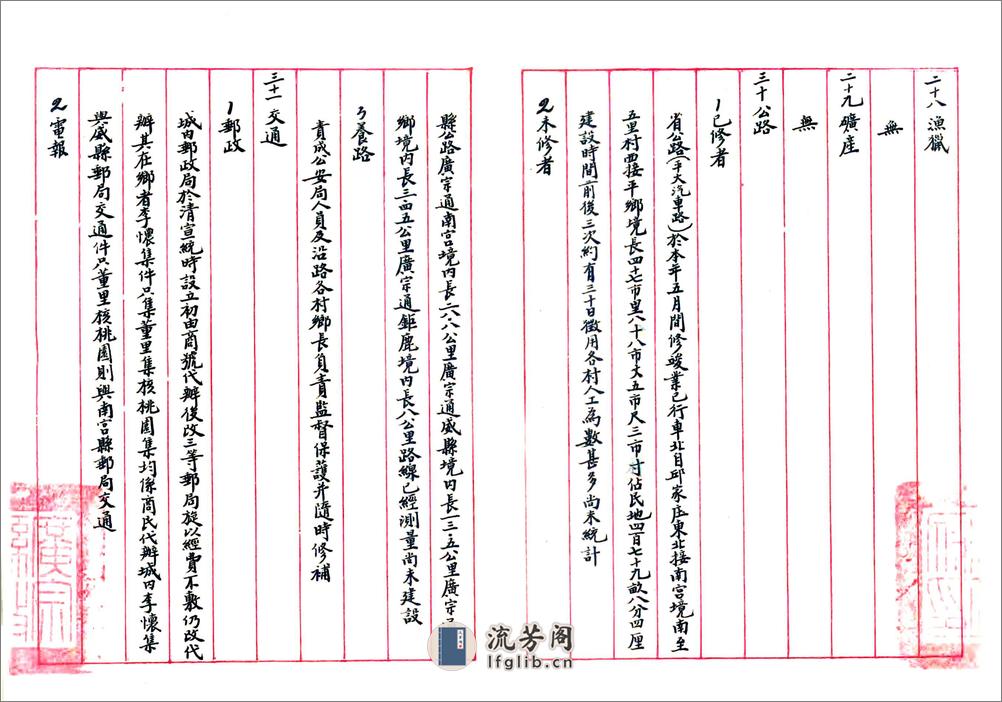 二十八漁獵
無
二十九礦產
無
三十公路
1已修者
省公路(平大汽車路)於本年五月間修竣業已行車北自邱家庄東北接南宮境南至
五里村西接平鄉境長四十七市里八十八市丈五市尺三市寸佔民地四百七十九畝八分四厘
建設時間前後三次約有三十日徵用各村人工為數甚多尚未統計
2未修者
縣公路廣宗通南宮境內長二六八公里廣宗通威縣境內長一三五公里廣宗
鄉境內長三四五公里廣宗通鉅鹿境內長八公里路線已經測量尚未建設
3養路
責成公安局人員及沿路各村鄉長負責監督保護并隨時修補
三十一交通
1郵政
城內郵政局於清宣統時設立初由商號代辦後改三等郵局旋以經費不敷仍改代
辦其在鄉者李懷集件只集董里集核桃園集均係商民代辦城內李懷集
與威縣郵局交通件只董里核桃園則與南宮縣郵局交通
2電報
廣宗
流芳阁
lfglib.cn